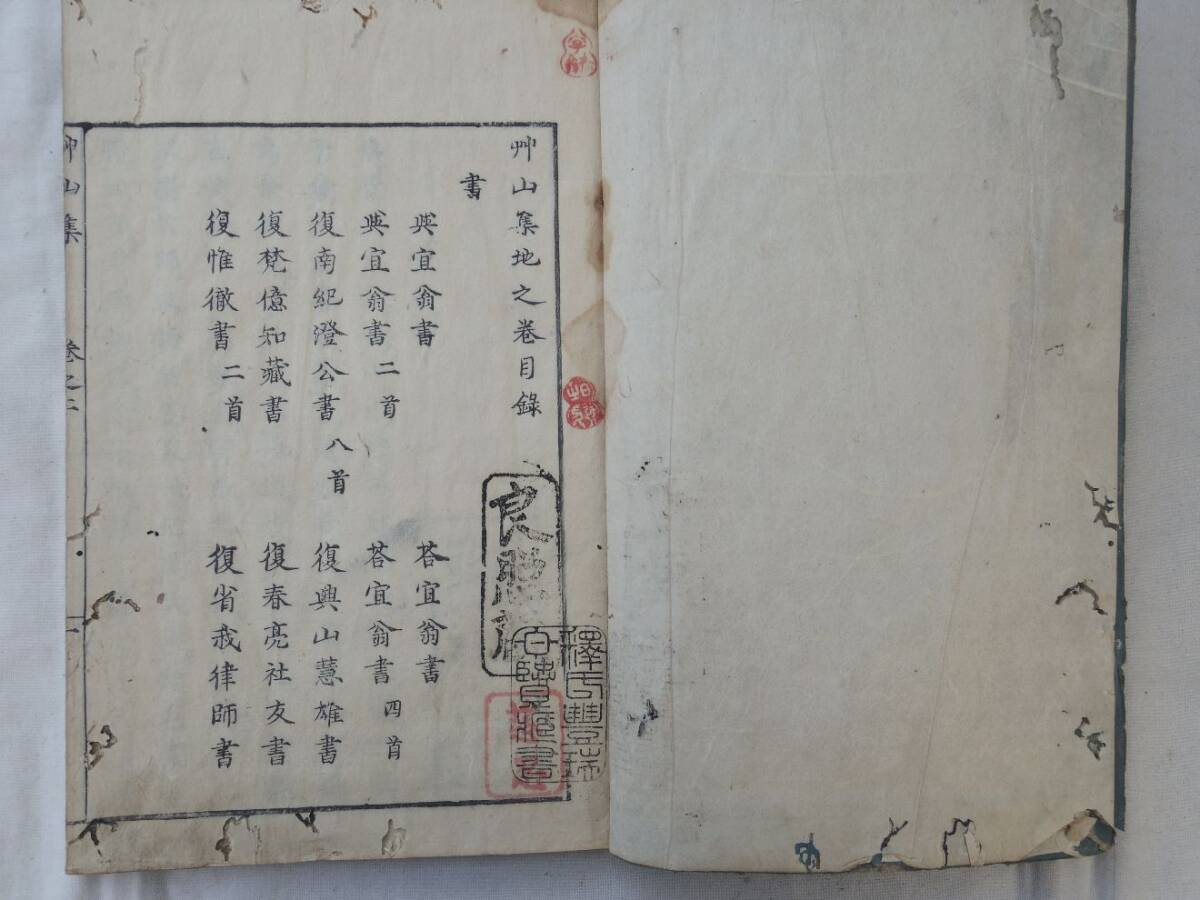 艸山集地之卷目錄
書
與宜翁書
荅宜翁書
與宜翁書二首
荅宜翁書四首
復南紀澄公書八首
復興山慧雄書
復梵億知藏書
復春亮社友書
復惟徹書二首
復省我律師書
艸山集
卷之二
一